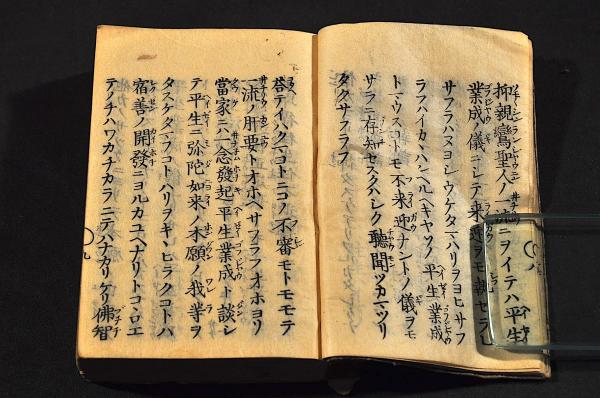 抑親鸞聖人ノ一流ニヲイテハ平生
業成ノ儀ニシテ来迎ヲモ執セラレ
サフラハヌヨシウケタマハリヲヨヒサフ
ラフハイカヽハンヘルヘキヤソノ平生業成
トマウスコトモ不来迎ナントノ儀ヲモ
サラニ存知セスクハシク聴聞ツカマツリ
タクサフラフ
答テイハクマコトニコノ不審モトモモテ
一流ノ肝要トオホヘサフラフオホヨソ
當家ニハ一念發起平生業成ト談シ
テ平生ニ弥陀如来ノ本願ノ我等ヲ
タスケタマフコトハリヲキヽヒラクコトハ
宿善ノ開發ニヨルカユヘナリトコヽロエ
テノチハワカチカラニテハナカリケリ佛智